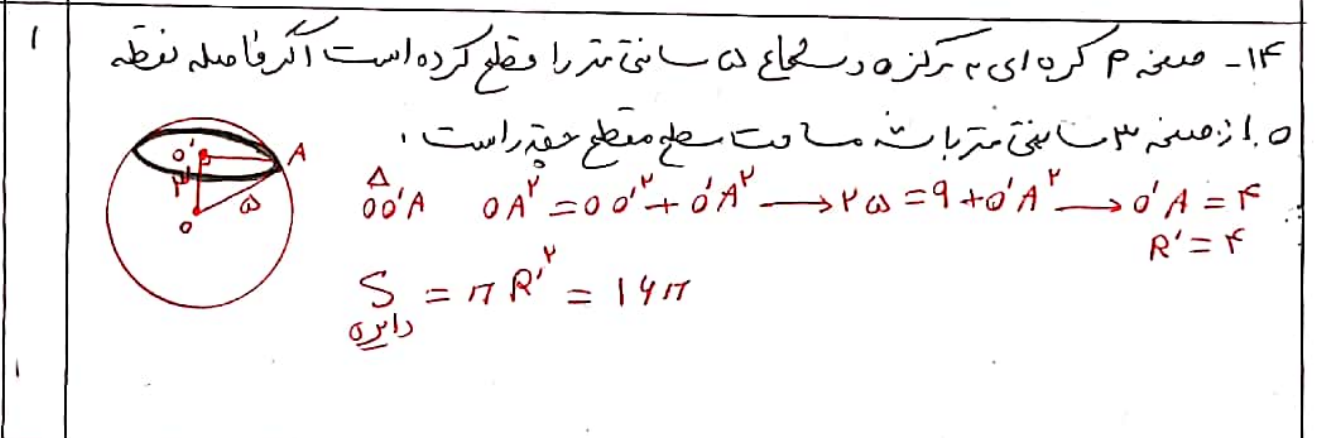 ۱
۱۴- صفحه P کره ای به مرکز o و شعاع ۵ سانتی متر را قطع کرده است اگر فاصله نقطه
o از صفحه ۳ سانتی متر باشد مساحت سطح مقطع چقدر است.
o' A
۳ ۵
o
△
oo'A OA^۲ = oo'^۲ + o'A^۲ → ۲۵ = ۹ + o'A^۲ → o'A = ۴
R' = ۴
S = πR'^۲ = ۱۶π
دایره